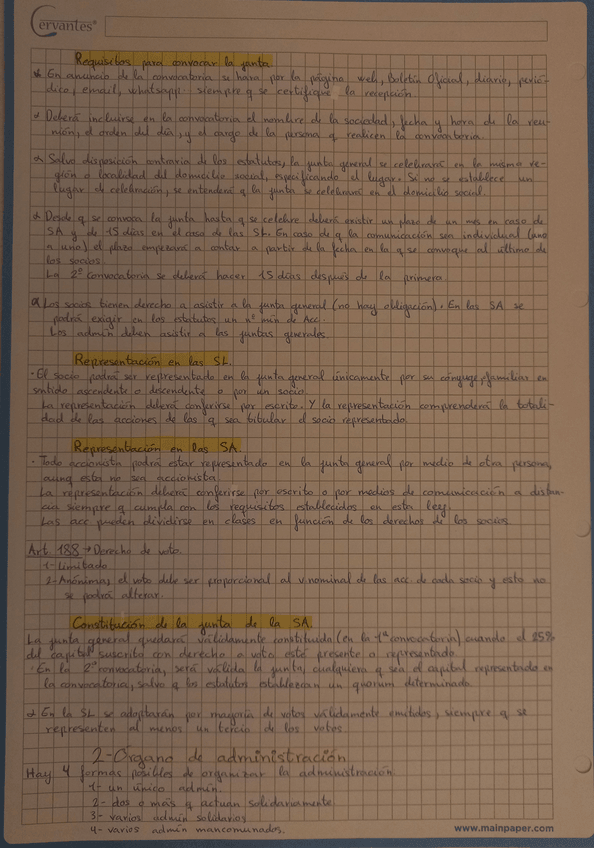 Cervantes®
Requisitos para convocar la junta
En anuncio de la convocatoria se hará por la página web, Boletín Oficial, diario, perió-
dico, email, whatsapp. siempre q se certifique la recepción.
Deberá incluirse en la convocatoria el nombre de la sociedad, fecha y hora de la reu-
nión, el orden del día, y el cargo de la persona q realicen la convocatoria.
Salvo disposición contraria de los estatutos, la junta general se celebrará en la misma re-
gión o localidad del domicilio social, especificando el lugar. Si no se establece un
lugar de celebración, se entenderá q la junta se celebrará en el domicilio social.
Desde q se convoca la junta hasta q se celebre deberá existir un plazo de un mes en caso de
SA y de 15 días en el caso de las SL. En caso de q la comunicación sea individual (uno
a uno) el plazo empezará a contar a partir de la fecha en la q se convoque al último de
los socios.
La 2º convocatoria se deberá hacer 15 días después de la primera.
Los socios tienen derecho a asistir a la junta general (no hay obligación). En las SA se
podrá exigir en los estatutos un nº mín de Acc.
Los admin deben asistir a las juntas generales.
Representación en las SL.
- El socio podrá ser representado en la junta general únicamente por su cónyuge, familiar en
sentido ascendente o descendente o por un socio.
La representación deberá conferirse por escrito. Y la representación comprenderá la totali-
dad de las acciones de las q sea titular el socio representado.
Representación en las SA.
- Todo accionista podrá estar representado en la junta general por medio de otra persona,
aunq esta no sea accionista.
La representación deberá conferirse por escrito o por medios de comunicación a distan-
cia siempre q cumpla con los requisitos establecidos en esta ley.
Las acc pueden dividirse en clases en función de los derechos de los socios.
Art. 188 → Derecho de voto.
1- Limitado
2- Anónimas, el voto debe ser proporcional al v nominal de las acc. de cada socio y esto no
se podrá alterar.
Constitución de la junta de la SA.
La junta general quedará válidamente constituida (en la 1ª convocatoria) cuando el 25%
del capital suscrito con derecho a voto esté presente o representado.
- En la 2ª convocatoria, será válida la junta, cualquiera q sea el capital representado en
la convocatoria, salvo q los estatutos establezcan un quorum determinado.
En la SL se adoptarán por mayoría de votos válidamente emitidos, siempre q se
representen al menos un tercio de los votos.
2- Órgano de administración
Hay 4 formas posibles de organizar la administración:
1- un único admin.
2- dos o más q actuan solidariamente
3- varios admin solidarios
4- varios admin mancomunados.
www.mainpaper.com